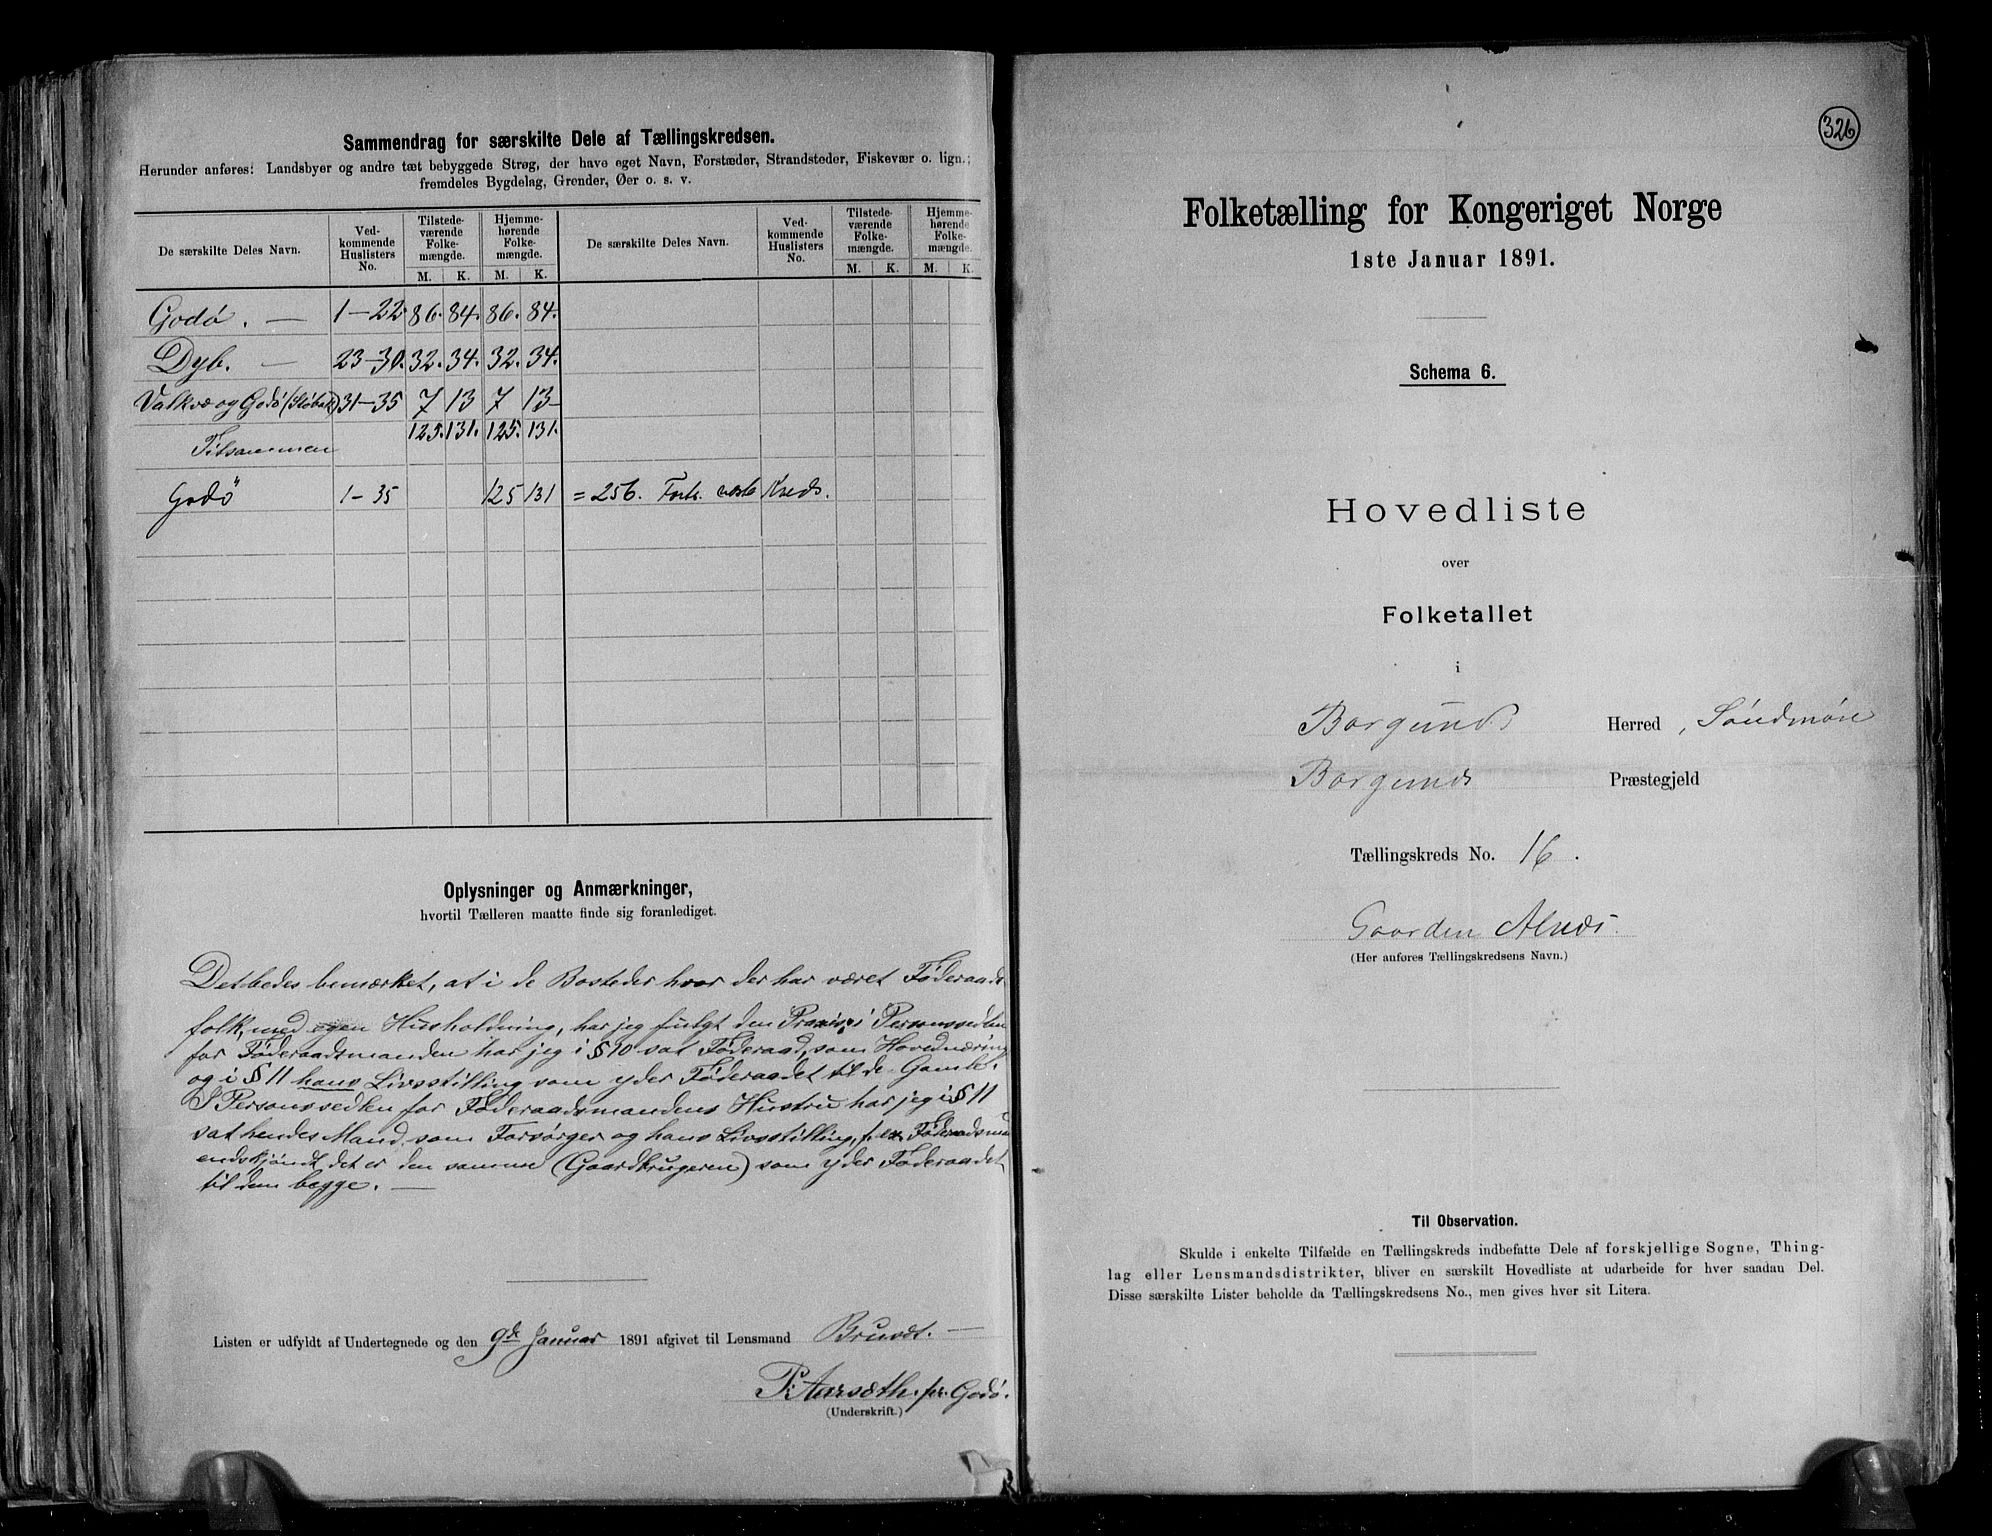 Sammendrag for særskilte Dele af Tællingskredsen.
Herunder anføres: Landsbyer og andre tæt bebyggede Strøg, der have eget Navn, Forstæder, Strandsteder, Fiskevær o. lign.;
fremdeles Bygdelag, Grender, Øer o. s. v.
De særskilte Deles Navn. Ved-kommende Huslisters No. Tilstede-værende Folke-mængde. M. K. Hjemme-hørende Folke-mængde. M. K. De særskilte Deles Navn. Ved-kommende Huslisters No. Tilstede-værende Folke-mængde. M. K. Hjemme-hørende Folke-mængde. M. K.
Godø. — 1—22. 86. 84. 86. 84.
Dyb. — 23—30. 32. 34. 32. 34.
Valkvæ og Godø 31—35 7 13 7 13
Tilsammen 125. 131. 125. 131.
Godö 1—35 125 131 = 256. Kreds.
Oplysninger og Anmærkninger,
hvortil Tælleren maatte finde sig foranlediget.
Det bedes bemærket, at i de Bosteder hvor der har været Føderaads
folk, med egen Husholdning, har jeg fulgt den Praxis; i Personssedlen
for Føderaadsmanden har jeg i § 10 sat Føderaad, som Hovednæring
og i § 11 hans Livsstilling som yder Føderaadet til de Gamle.
I Personssedlen for Føderaadsmandens Hustru har jeg i § 11
sat hendes Mand som Forsørger og hans Livsstilling, f. ex. Føderaadsman
endskjøndt det er den samme (Gaardbrugeren) som yder Føderaadet
til dem begge. —
Listen er udfyldt af Undertegnede og den 9de Januar 1891 afgivet til Lensmand Bruset. —
P. Aarsæth. for Godø.
(Underskrift.)
326
Folketælling for Kongeriget Norge
1ste Januar 1891.
Schema 6.
Hovedliste
over
Folketallet
i
Borgunds Herred, Søndmøre
Borgunds Præstegjeld
Tællingskreds No. 16.
Gaarden Alnæs.
(Her anføres Tællingskredsens Navn.)
Til Observation.
Skulde i enkelte Tilfælde en Tællingskreds indbefatte Dele af forskjellige Sogne, Thing-
lag eller Lensmandsdistrikter, bliver en særskilt Hovedliste at udarbeide for hver saadan Del.
Disse særskilte Lister beholde da Tællingskredsens No., men gives hver sit Litera.